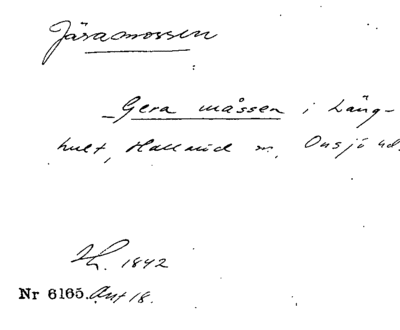 Järamossen
Gera måssen i Läng-
hult, Hallaröd sn, Onsjö hd.
1842
Nr 6165. Ant 18.